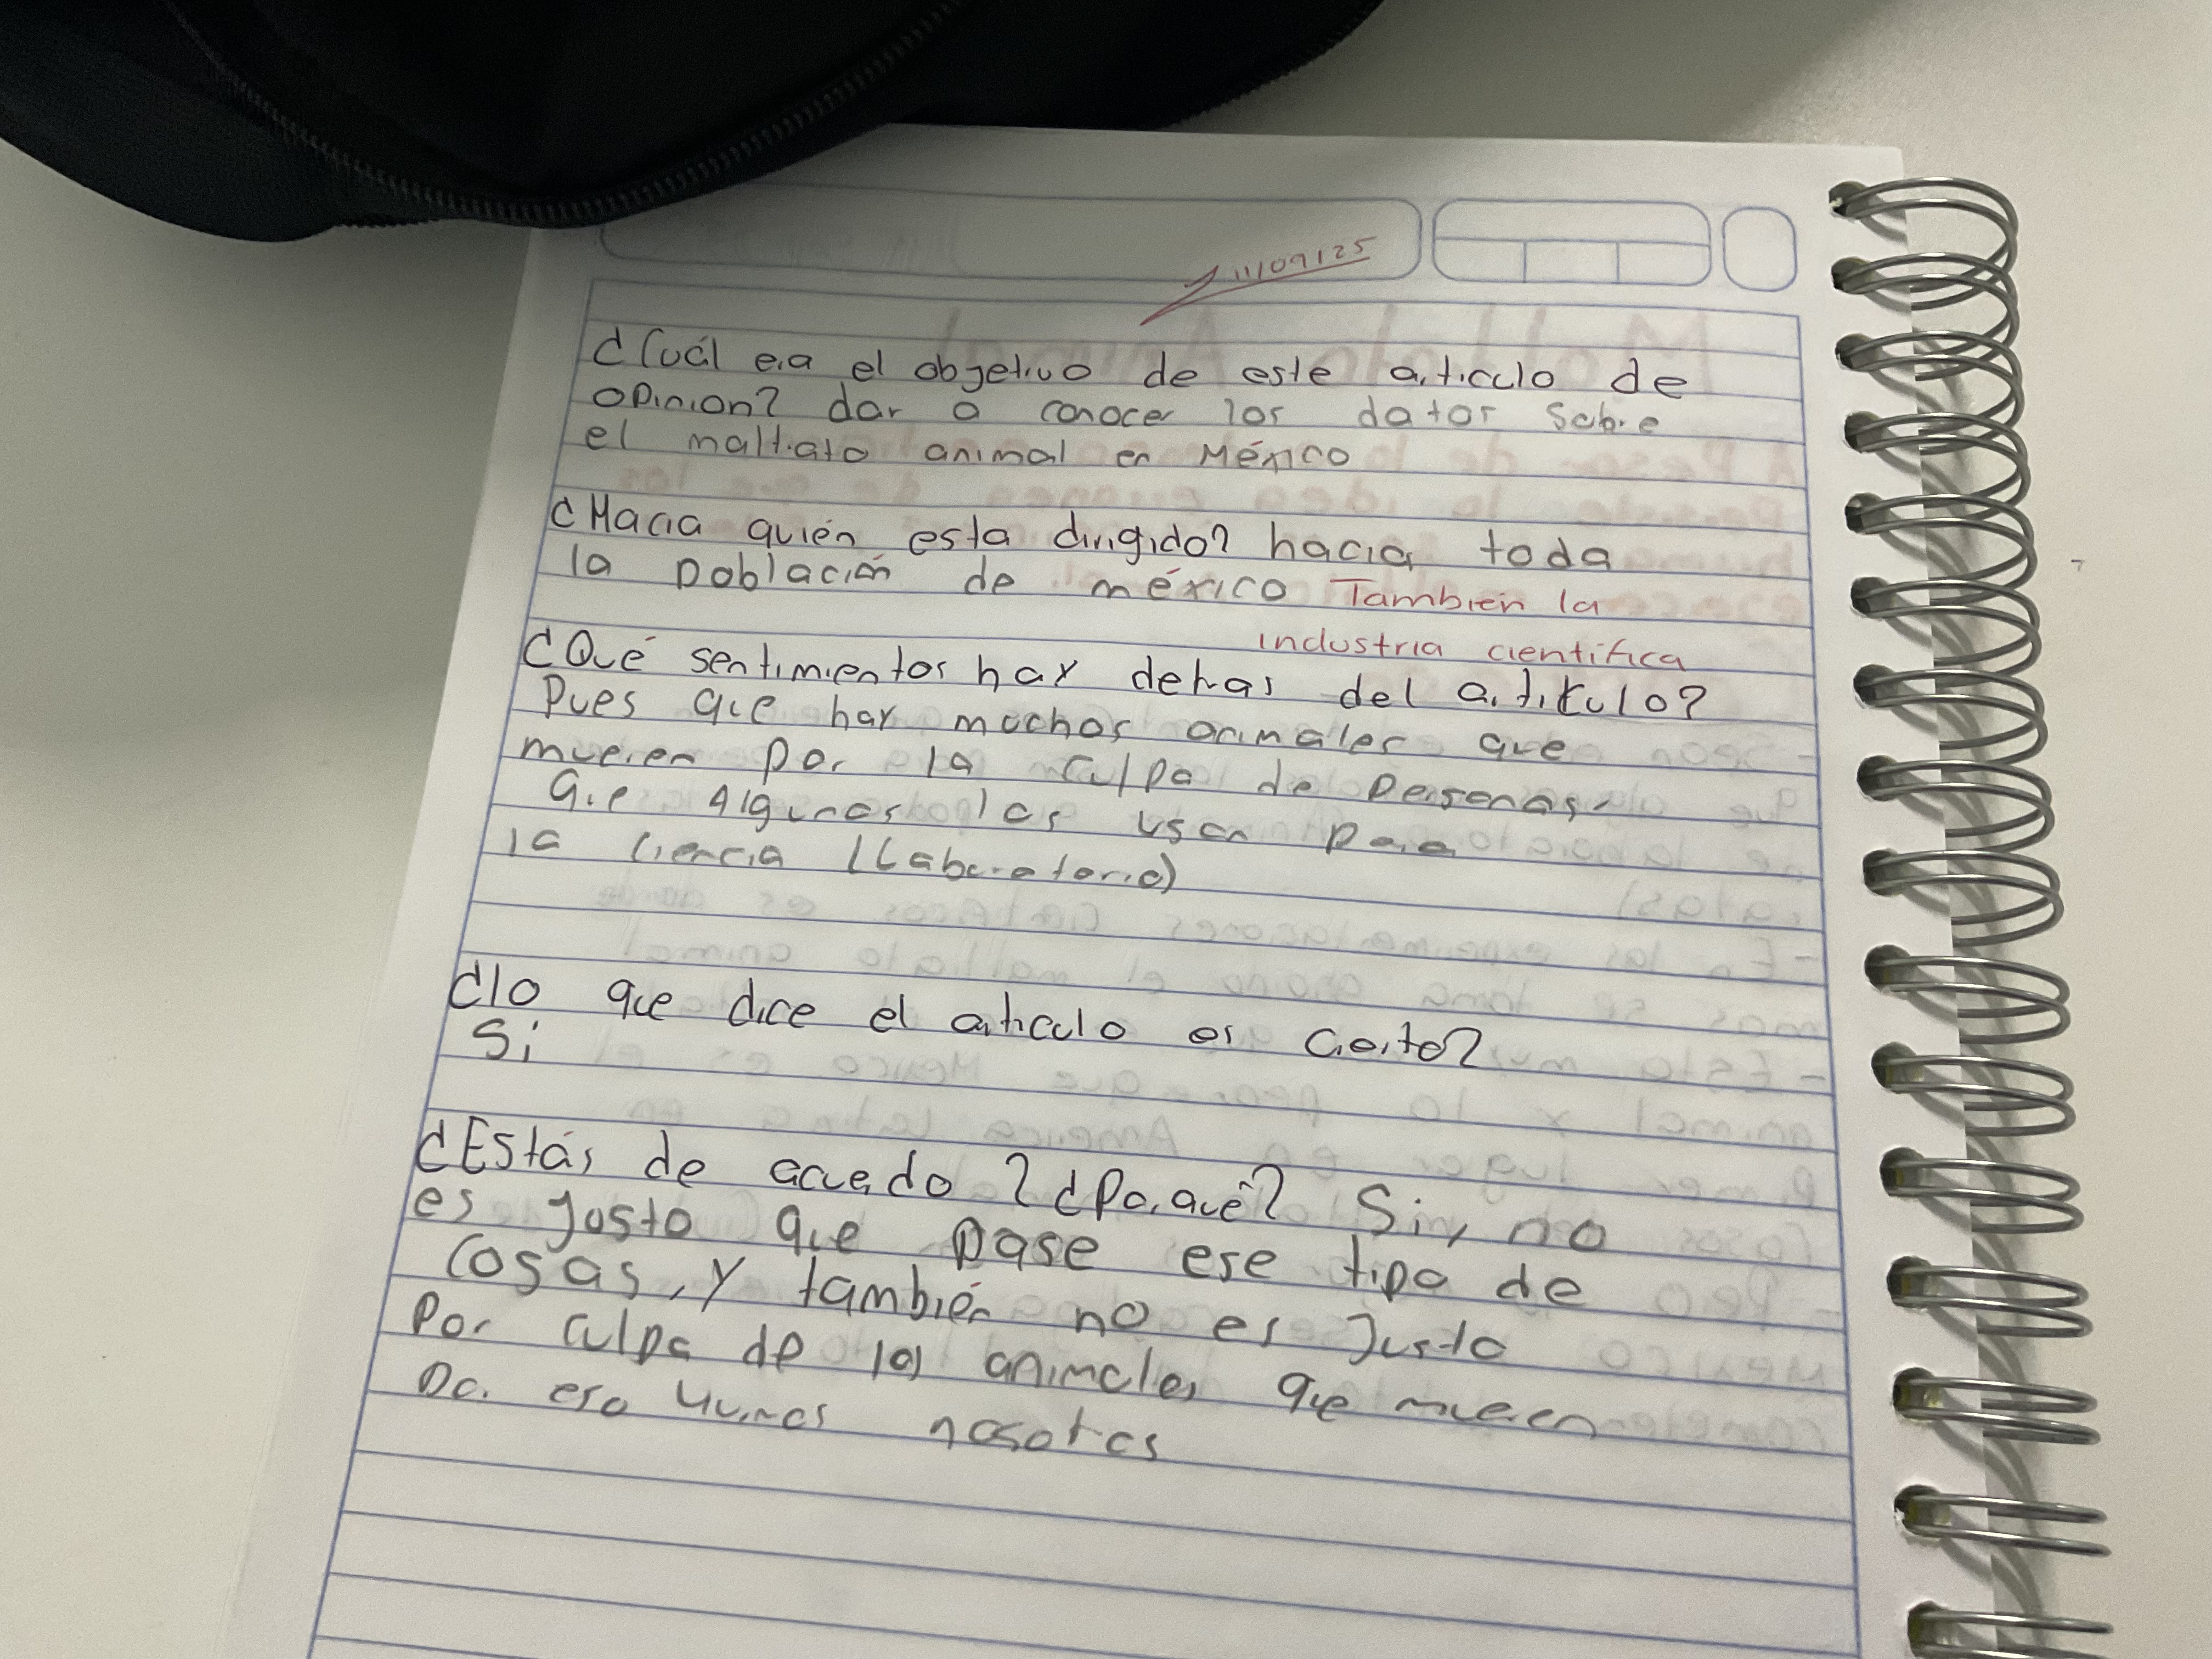 11/09/25
¿Cuál era el objetivo de este articulo de
opinion? dar a conocer los datos sobre
el maltrato animal en México
¿Hacia quién esta dirigido? hacia toda
la población de méxico También la
industria científica
¿Qué sentimientos hay detras del artitulo?
Pues que hay muchos animales que
mueren por la culpa de personas.
que Algunos los usan para
la ciencia (Laboratorio)
¿lo que dice el articulo es cierto?
Si
¿Estás de acuerdo? ¿Porqué? Si, no
es justo que pase ese tipo de
cosas, y también no es Justo
Por culpa de los animales que mueren
Por eso vivimos nosotros